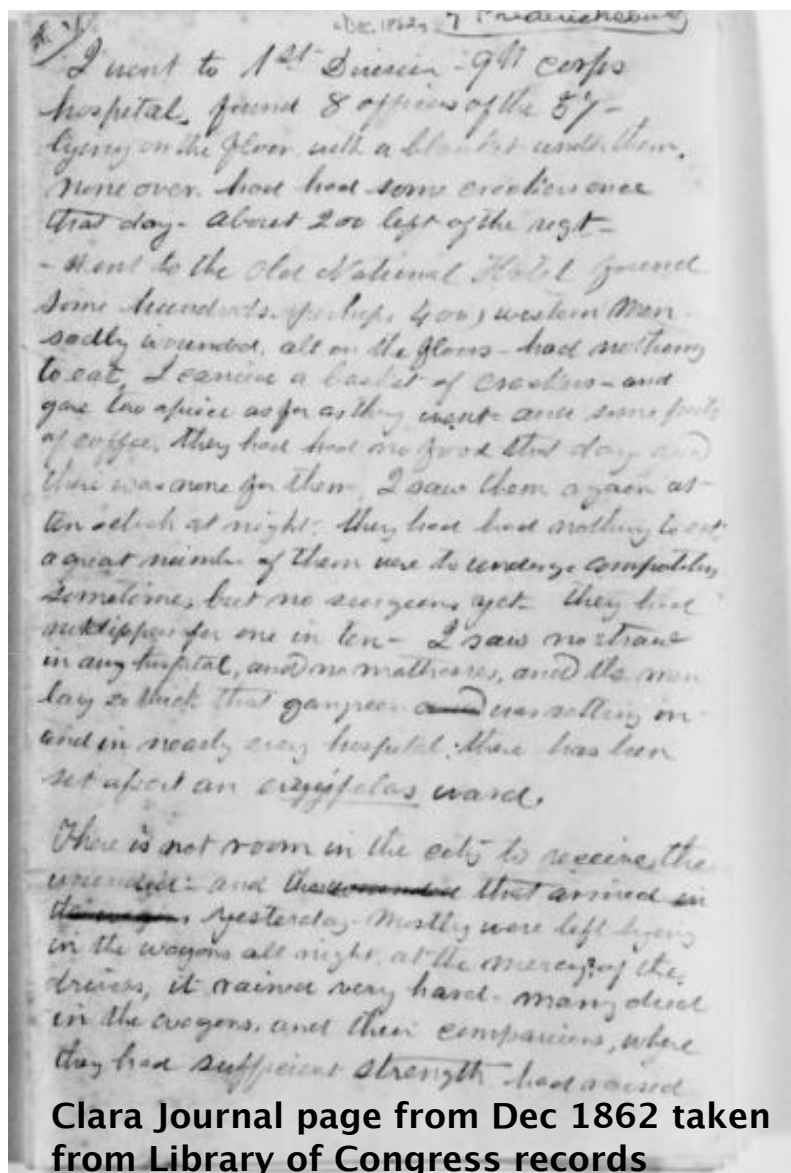 Dec. 1862
Fredericksburg
I went to 1st Division - 9th corps
hospital, found 8 officers of the 57-
lying on the floor with a blanket under them,
none over. had had some crackers once
that day. About 200 left of the regt-
- Went to the Old National Hotel found
some hundreds (perhaps 400) western men
sadly wounded, all on the floors - had nothing
to eat, I carried a basket of crackers - and
gave two apiece as far as they went and some pails
of coffee, they had had no food that day and
there was none for them. I saw them again at
ten o'clock at night. they had had nothing to eat
a great number of them were to undergo amputation
sometime, but no surgeons yet. they had
not dippers for one in ten - I saw no straw
in any hospital, and no mattresses, and the men
lay so thick that gangreen and was setting in
and in nearly every hospital, there has been
set apart an erysipelas ward.
There is not room in the city to receive the
wounded: and the wounded that arrived in
the wagons, yesterday - mostly were left lying
in the wagons all night, at the mercy of the
drivers, it rained very hard - many died
in the wagons, and their companions, where
they had sufficient strength had raised
Clara Journal page from Dec 1862 taken
from Library of Congress records